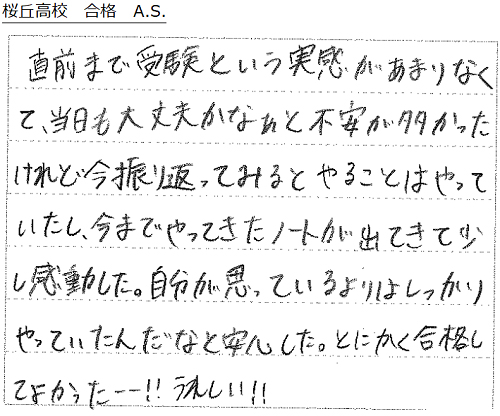 桜丘高校　合格　A.S.
直前まで受験という実感があまりなく
て、当日も大丈夫かなぁと不安が多かった
けれど今振り返ってみるとやることはやって
いたし、今までやってきたノートが出てきて少
し感動した。自分が思っているよりはしっかり
やっていたんだなと安心した。とにかく合格し
てよかったーー!! うれしい!!